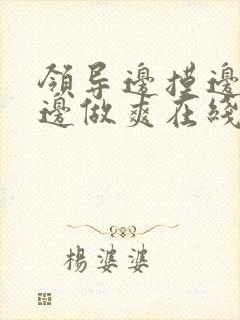 領导邊摸邊
邊做爽在綫
楊婆婆